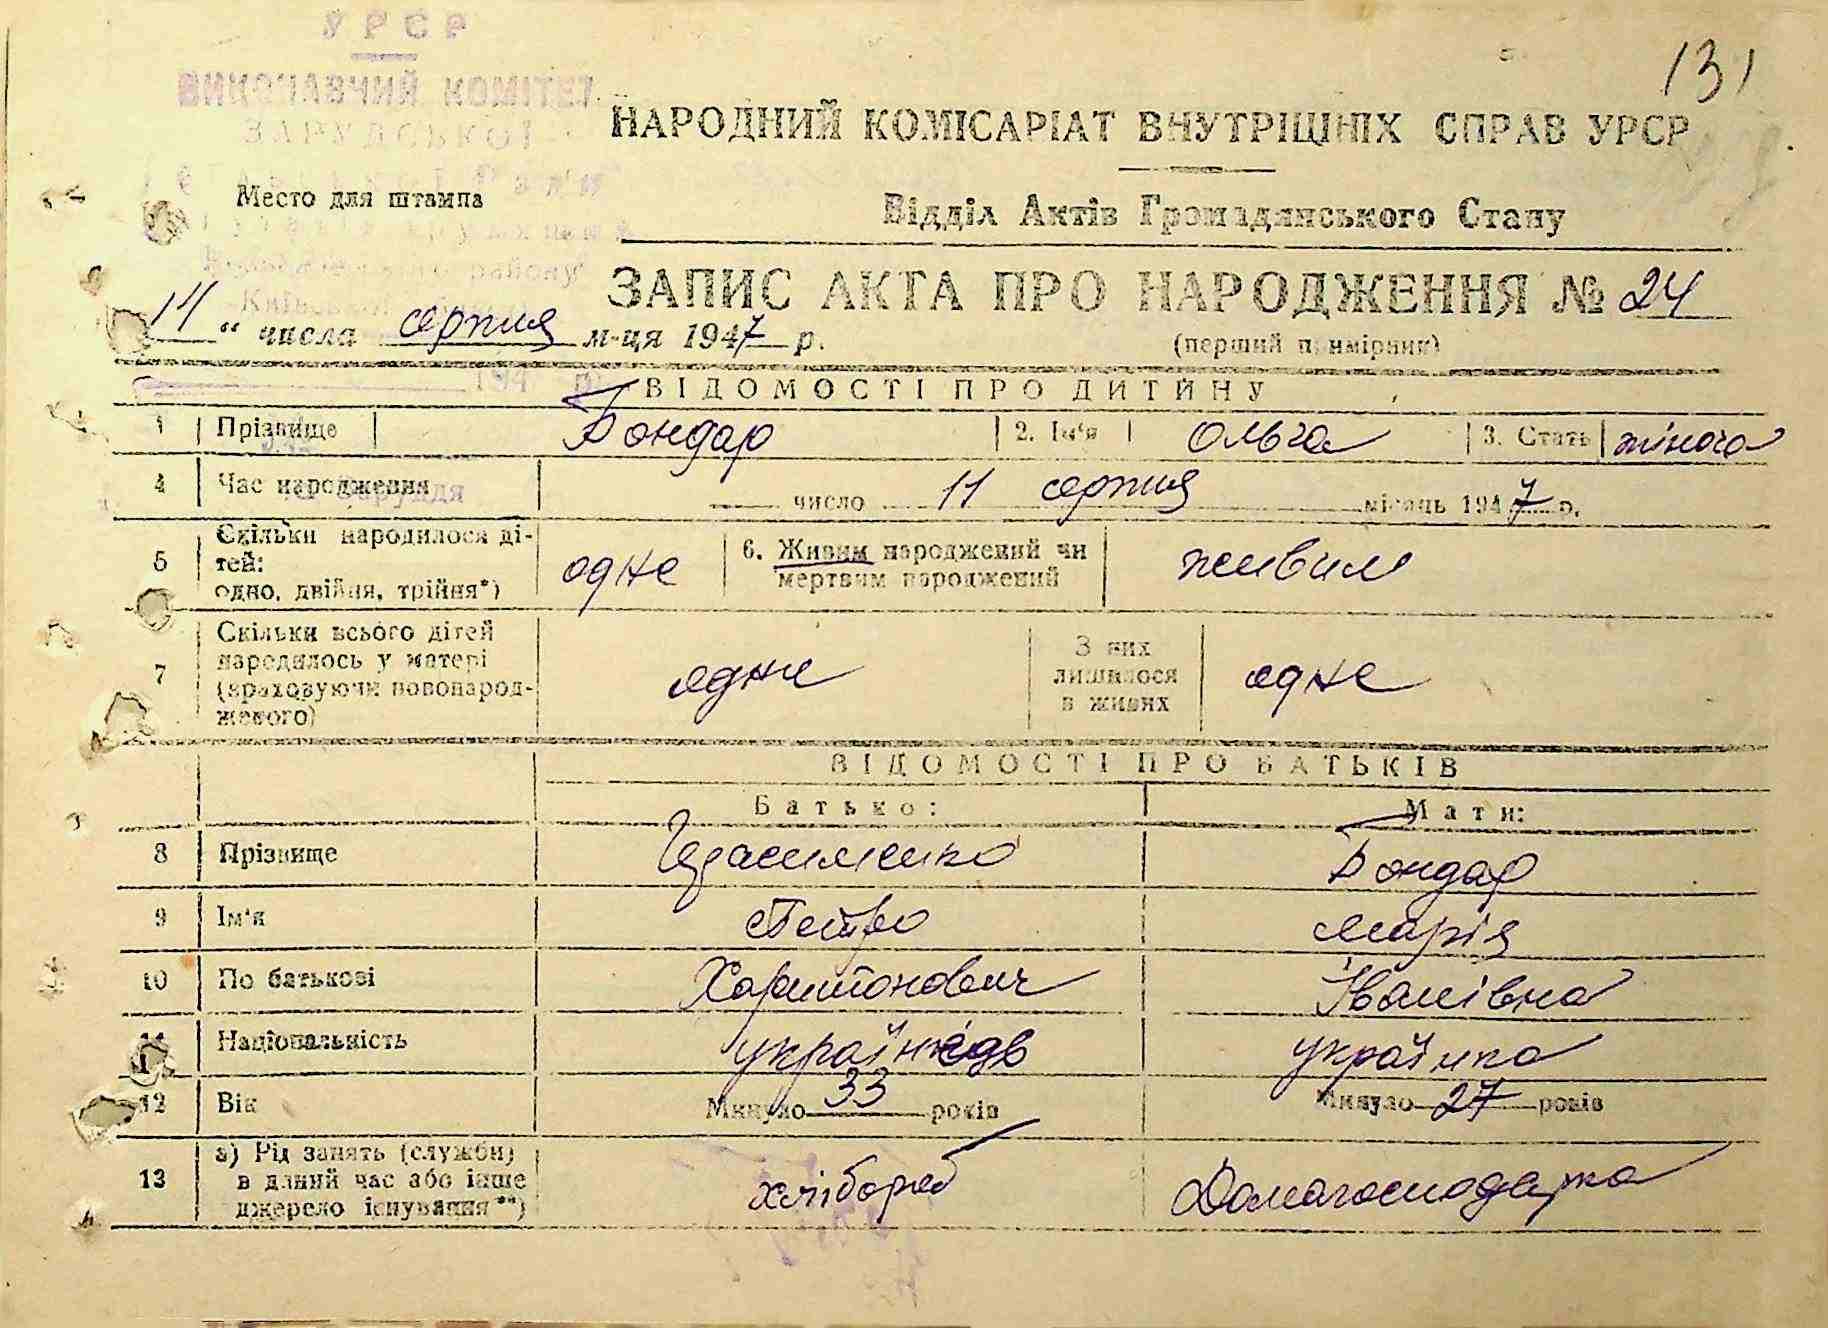 УРСР
131
ВИКОНАВЧИЙ КОМІТЕТ
ЗАРУДСЬКОЇ
НАРОДНИЙ КОМІСАРІАТ ВНУТРІШНІХ СПРАВ УРСР
Место для штампа
Відділ Актів Громадянського Стану
району
ЗАПИС АКТА ПРО НАРОДЖЕННЯ № 24
11 " числа серпня м-ця 1947 р.
(перший примірник)
194 р.
ВІДОМОСТІ ПРО ДИТИНУ
1 Прізвище Бондар 2. Ім'я Ольга 3. Стать жіноча
4 Час народження число 11 серпня місяць 1947 р.
с. Зарудя
5 Скільки народилося ді-
тей:
одно, двійня, трійня*) одне 6. Живим народжений чи
мертвим народжений живим
7 Скільки всього дітей
народилось у матері
(враховуючи новонарод-
женого) одне З них
лишилося
в живих одне
ВІДОМОСТІ ПРО БАТЬКІВ
Батько: Мати:
8 Прізвище Герасименко Бондар
9 Ім'я Петро Марія
10 По батькові Харитонович Іванівна
11 Національність українка
12 Вік Минуло 33 років Минуло 27 років
13 а) Рід занять (служби)
в даний час або інше
джерело існування**) хлібороб Домагосподарка